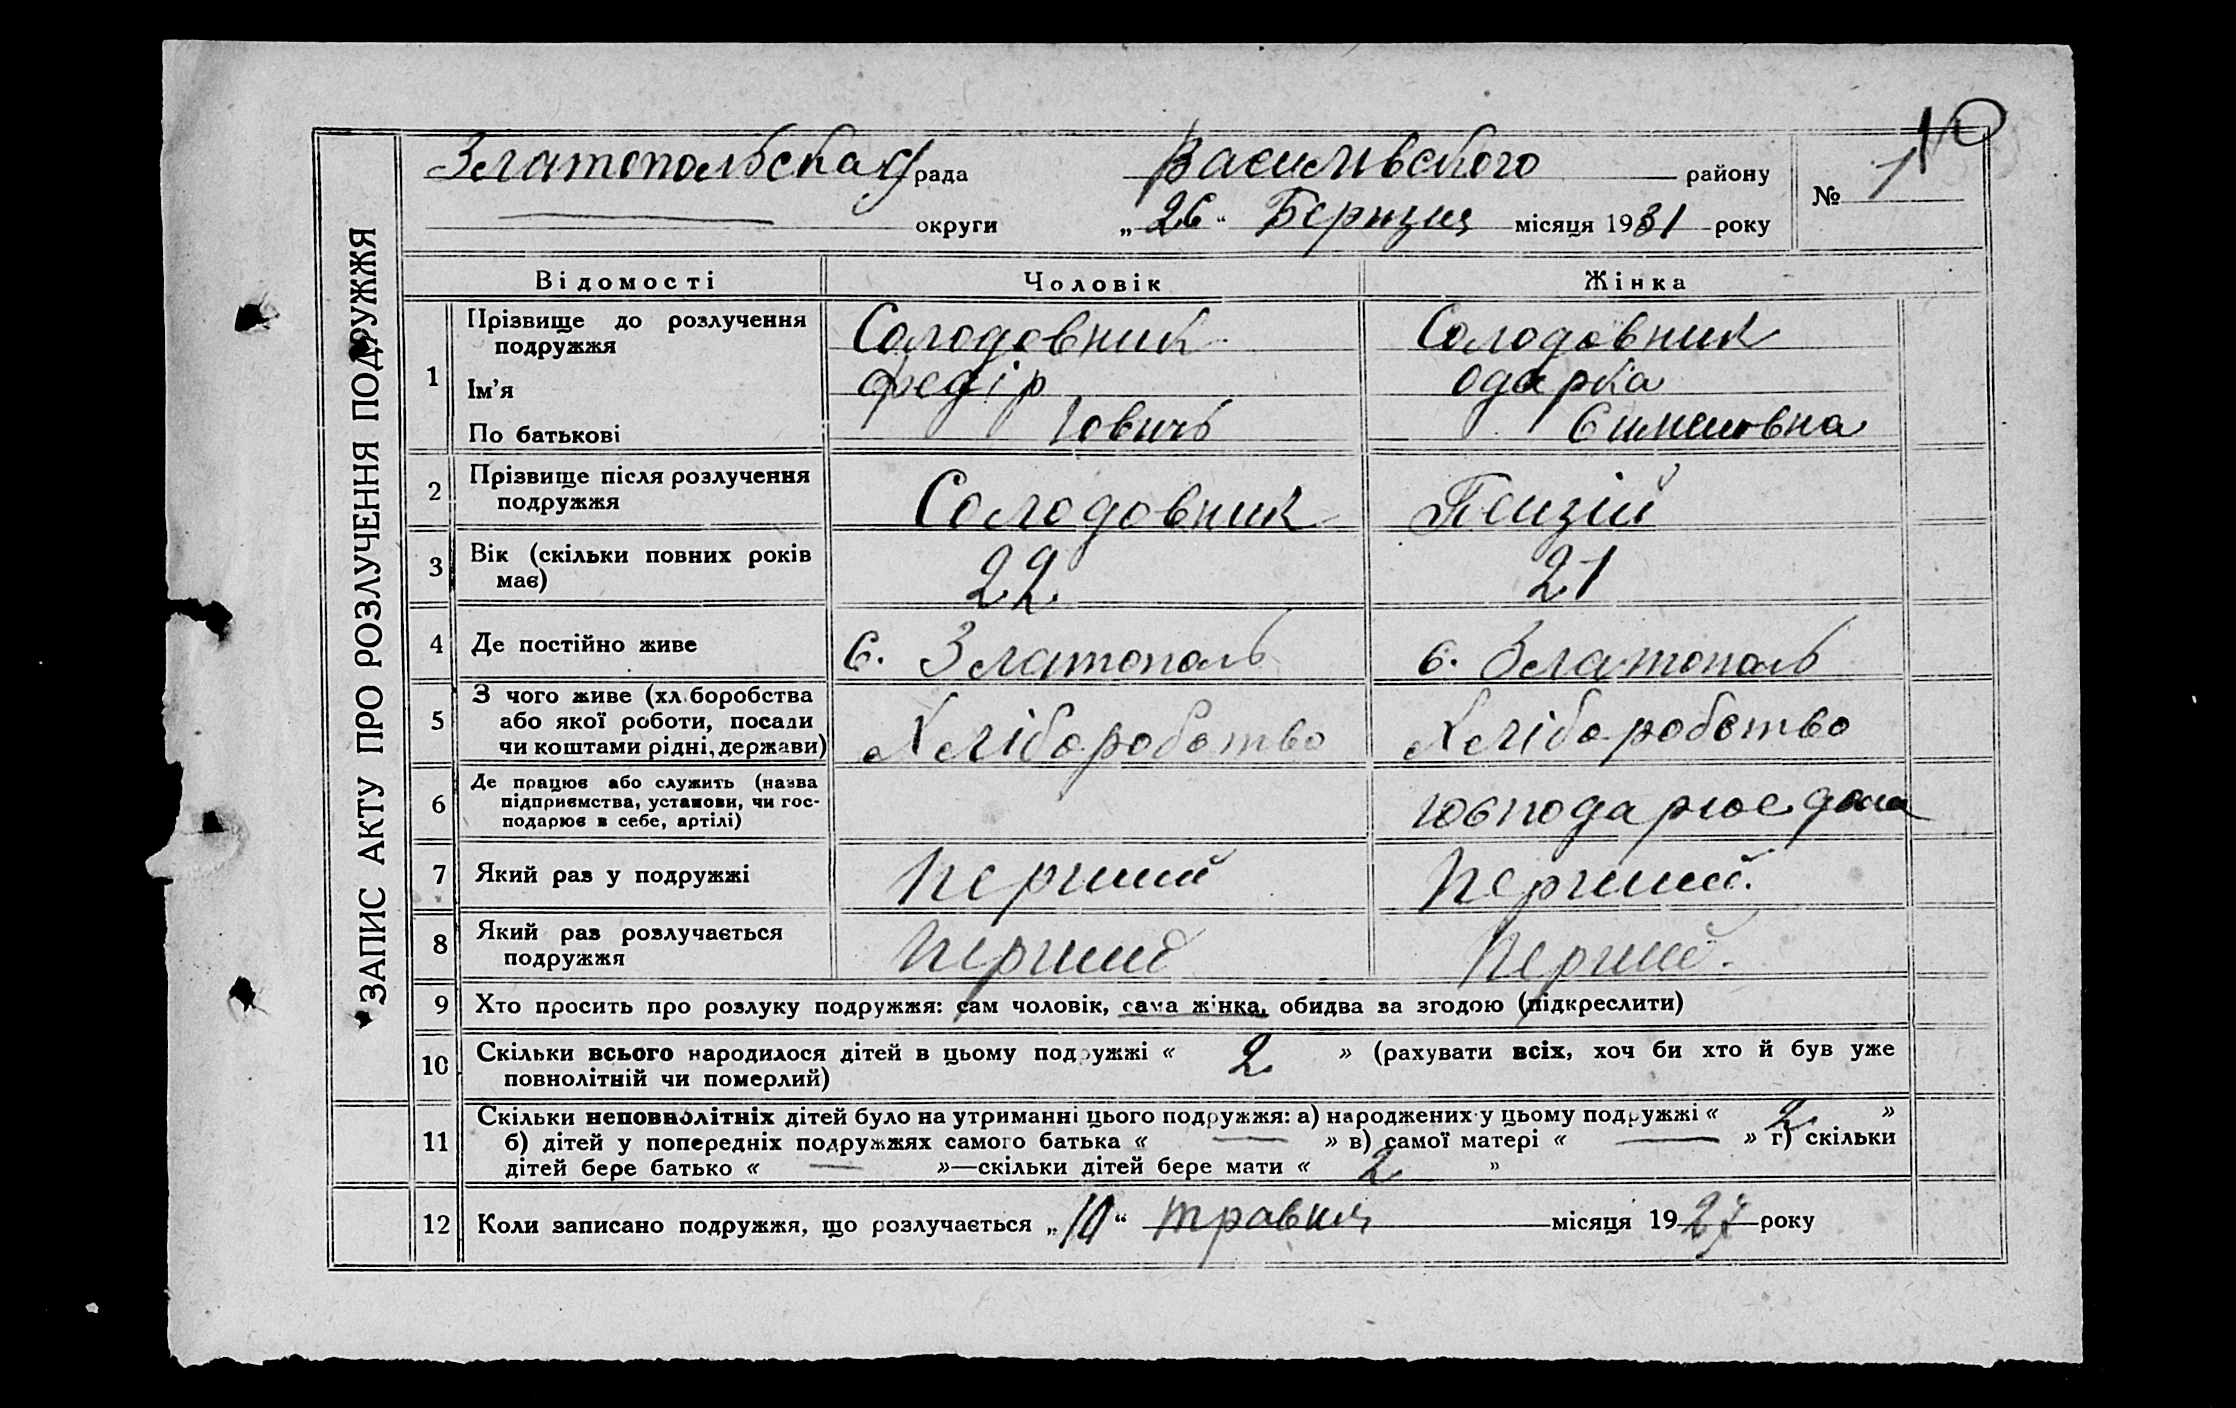 ЗАПИС АКТУ ПРО РОЗЛУЧЕННЯ ПОДРУЖЖЯ
10
Златопольская рада Василівського району № 1
округи „26“ Березня місяця 1931 року
Відомості Чоловік Жінка
1 Прізвище до розлучення подружжя Солодовник Солодовник
Ім’я Федір Одарка
По батькові Іович Симеоновна
2 Прізвище після розлучення
подружжя Солодовник
3 Вік (скільки повних років
має) 22 21
4 Де постійно живе с. Златополь с. Златополь
5 З чого живе (хліборобства
або якої роботи, посади
чи коштами рідні, держави) Хліборобство Хліборобство
6 Де працює або служить (назва
підприємства, установи, чи гос-
подарює в себе, артілі) господарює дома
7 Який раз у подружжі Перший Перший.
8 Який раз розлучається
подружжя Перший Перший.
9 Хто просить про розлуку подружжя: сам чоловік, сама жінка, обидва за згодою (підкреслити)
10 Скільки всього народилося дітей в цьому подружжі « 2 » (рахувати всіх, хоч би хто й був уже
повнолітній чи померлий)
11 Скільки неповнолітніх дітей було на утриманні цього подружжя: а) народжених у цьому подружжі « 2 »
б) дітей у попередніх подружжях самого батька « — » в) самої матері « — » г) скільки
дітей бере батько « — »—скільки дітей бере мати « 2 »
12 Коли записано подружжя, що розлучається „10“ травня місяця 1927 року